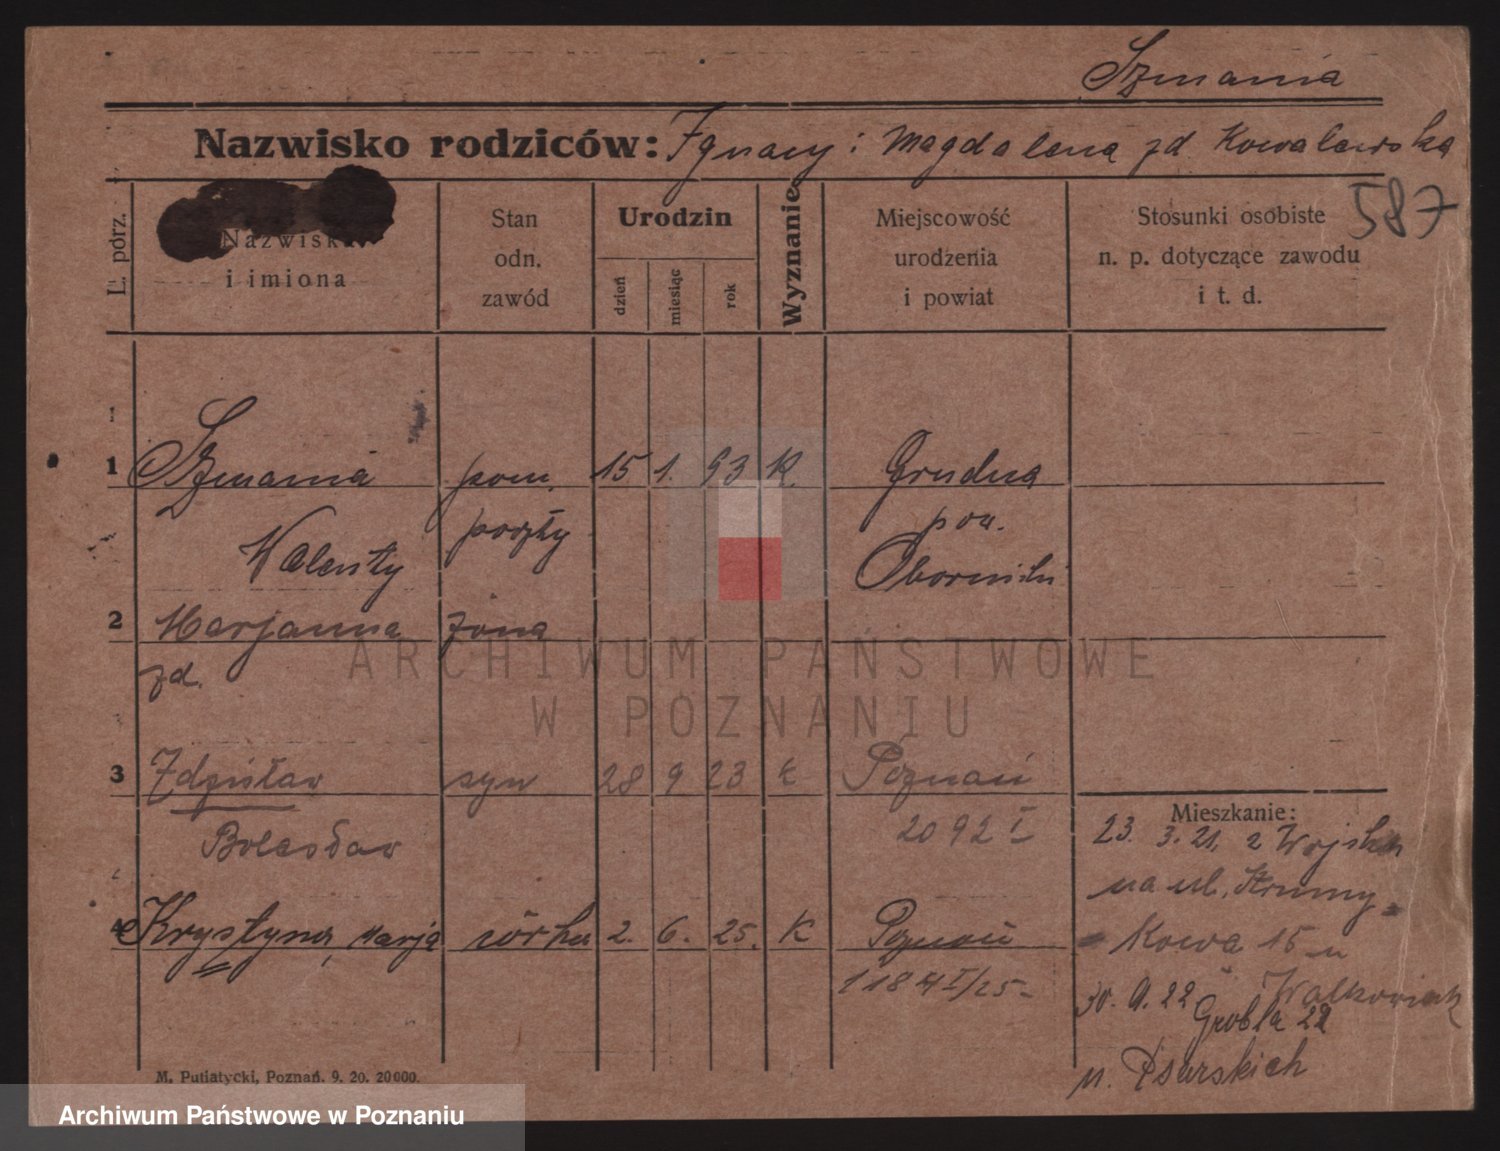 Szmania
Nazwisko rodziców: Ignacy i Magdalena zd Kowalewska
587
L. porz.
Nazwiska
i imiona
Stan
odn.
zawód
Urodzin
dzień
miesiąc
rok
Wyznanie
Miejscowość
urodzenia
i powiat
Stosunki osobiste
n. p. dotyczące zawodu
i t. d.
1 Szmania pom. 15 1. 93 K. Grudna
Walenty poczty pow.
Oborniki
2 Marjanna żona
zd.
3 Zdzisław syn 28 9 23 k Poznań
Bolesław 2092 I
4 Krystyna, Marja córka 2. 6. 25. K Poznań
I/25
Mieszkanie:
23. 3. 21, z Wojska
na ul. Strumy-
kowa 15 u
Walkowiak
30. 9. 22 Grobla 22
u. Psarskich
M. Putiatycki, Poznań. 9. 20. 20000.
ARCHIWUM PAŃSTWOWE
W POZNANIU
Archiwum Państwowe w Poznaniu